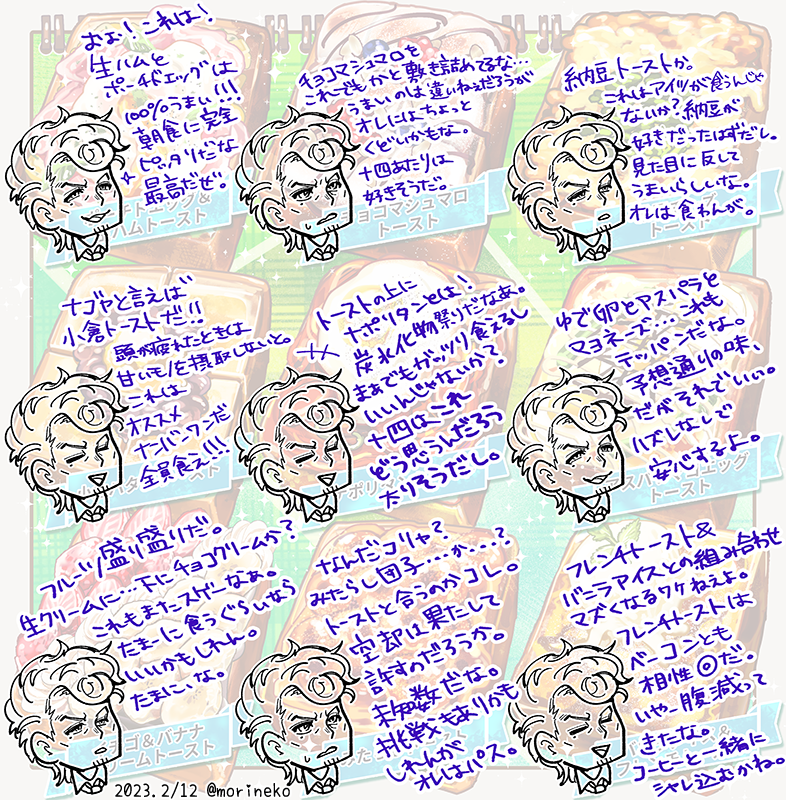 おぉ!これは!
生ハムと
ポーチドエッグは
100%うまい!!!
朝食に完全
ピッタリだな
最高だぜ。
チドエッグ&
ハムトースト
チョコマシュマロを
これでもかと敷き詰めてるな…
うまいのは違いねぇだろうが
オレにはちょっと
くどいかもな。
十四あたりは
好きそうだ。
チョコマシュマロ
トースト
納豆トーストか。
これはアイツが食うんじゃ
ないか?納豆が
好きだったはずだし。
見た目に反して
うまいらしいな。
オレは食わんが。
トースト
ナゴヤと言えば
小倉トーストだ!!
頭が疲れたときは
甘いモノを摂取しないと。
これは
オススメ
ナンバーワンだ
全員食え!!!
トースト
トーストの上に
ナポリタンとは!
炭水化物祭りだなあ。
まあでもガッツリ食えるし
いいんじゃないか?
十四はこれ
どう思うんだろう
太りそうだし。
ナポリ
ゆで卵とアスパラと
マヨネーズ…これも
テッパンだな。
予想通りの味、
だがそれでいい。
ハズレなしで
安心するよ。
スパ
エッグ
トースト
フルーツ盛り盛りだ。
生クリームに…下にチョコクリームか?
これもまたスゲーなあ。
たまーに食うぐらいなら
いいかもしれん。
たまにな。
チゴ&バナナ
ームトースト
なんだコリャ?
みたらし団子…か…?
トーストと合うのかコレ。
空却は果たして
許すのだろうか。
未知数だな。
挑戦もありかも
しれんが
オレはパス。
フレンチトースト&
バニラアイスとの組み合わせ
マズくなるワケねえよ。
フレンチトーストは
ベーコンとも
相性◎だ。
いや、腹減って
きたな。
コーヒーと一緒に
シャレ込むかね。
2023.2/12 @morineko